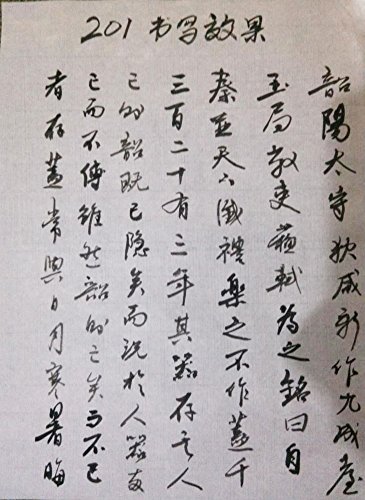 201 书写效果
韶陽太守狄咸新作九成臺
玉局散吏蘇軾為之銘曰自
秦並天下滅禮樂之不作蓋千
三百二十有三年其器存其人
亡則韶既已隐矣而況於人器兩
亡而不傳雖然韶則亡矣而不亡
者存蓋常與日月寒暑晦